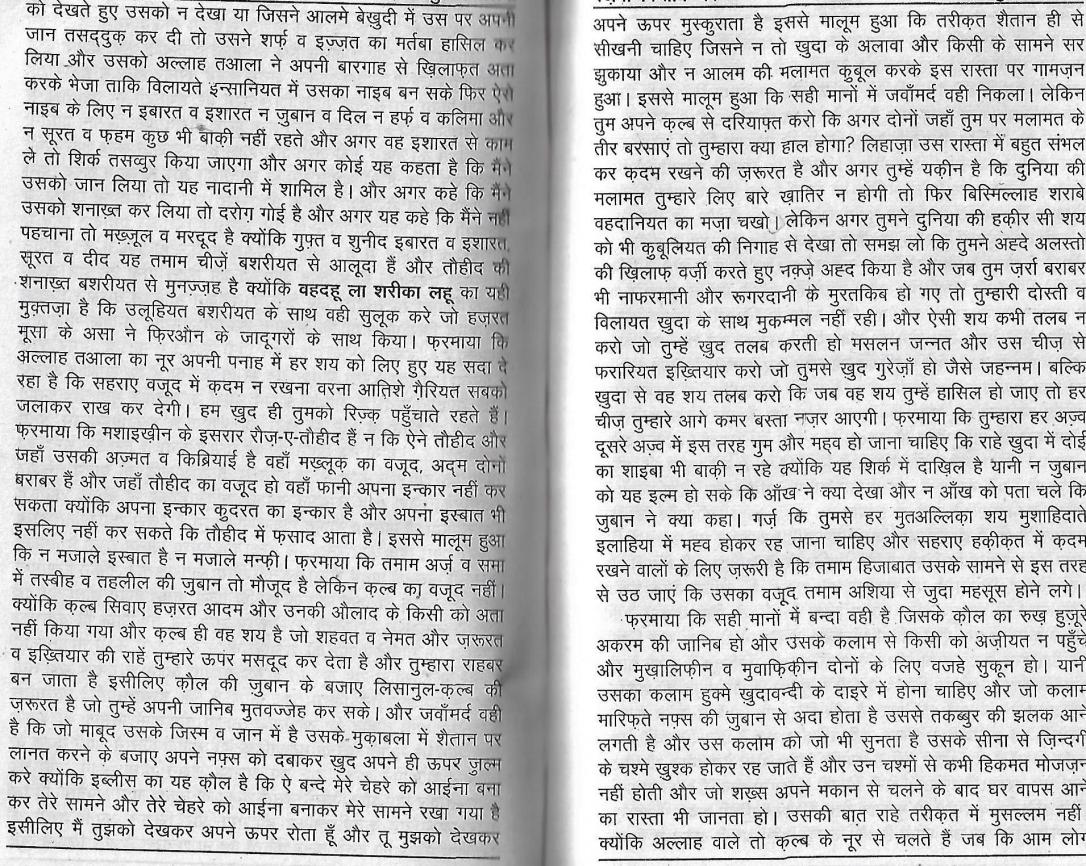 को देखते हुए उसको न देखा या जिसने आलमे बेखुदी में उस पर अपनी
जान तसद्दुक़ कर दी तो उसने शर्फ़ व इज़्ज़त का मर्तबा हासिल कर
लिया और उसको अल्लाह तआला ने अपनी बारगाह से ख़िलाफ़त अता
करके भेजा ताकि विलायते इन्सानियत में उसका नाइब बन सके फिर ऐसे
नाइब के लिए न इबारत व इशारत न ज़ुबान व दिल न हर्फ़ व कलिमा और
न सूरत व फ़हम कुछ भी बाक़ी नहीं रहते और अगर वह इशारत से काम
ले तो शिर्क तसव्वुर किया जाएगा और अगर कोई यह कहता है कि मैंने
उसको जान लिया तो यह नादानी में शामिल है। और अगर कहे कि मैंने
उसको शनाख़्त कर लिया तो दरोग़ गोई है और अगर यह कहे कि मैंने नहीं
पहचाना तो मख़्ज़ूल व मरदूद है क्योंकि गुफ़्त व शुनीद इबारत व इशारत,
सूरत व दीद यह तमाम चीज़ें बशरीयत से आलूदा हैं और तौहीद की
शनाख़्त बशरीयत से मुनज़्ज़ह है क्योंकि वहदहू ला शरीका लहू का यही
मुक़्तज़ा है कि उलूहियत बशरीयत के साथ वही सुलूक करे जो हज़रत
मूसा के असा ने फ़िरऔन के जादूगरों के साथ किया। फ़रमाया कि
अल्लाह तआला का नूर अपनी पनाह में हर शय को लिए हुए यह सदा दे
रहा है कि सहराए वजूद में क़दम न रखना वरना आतिशे ग़ैरियत सबको
जलाकर राख कर देगी। हम ख़ुद ही तुमको रिज़्क़ पहुँचाते रहते हैं।
फ़रमाया कि मशाइख़ीन के इसरार रौज़-ए-तौहीद हैं न कि ऐने तौहीद और
जहाँ उसकी अज़्मत व किब्रियाई है वहाँ मख़्लूक़ का वजूद, अद्म दोनों
बराबर हैं और जहाँ तौहीद का वजूद हो वहाँ फानी अपना इन्कार नहीं कर
सकता क्योंकि अपना इन्कार क़ुदरत का इन्कार है और अपना इस्बात भी
इसलिए नहीं कर सकते कि तौहीद में फ़साद आता है। इससे मालूम हुआ
कि न मजाले इस्बात है न मजाले मन्फ़ी। फ़रमाया कि तमाम अर्ज़ व समा
में तस्बीह व तहलील की ज़ुबान तो मौजूद है लेकिन क़ल्ब का वजूद नहीं।
क्योंकि क़ल्ब सिवाए हज़रत आदम और उनकी औलाद के किसी को अता
नहीं किया गया और क़ल्ब ही वह शय है जो शहवत व नेमत और ज़रूरत
व इख़्तियार की राहें तुम्हारे ऊपर मसदूद कर देता है और तुम्हारा राहबर
बन जाता है इसीलिए क़ौल की ज़ुबान के बजाए लिसानुल-क़ल्ब की
ज़रूरत है जो तुम्हें अपनी जानिब मुतवज्जेह कर सके। और जवाँमर्द वही
है कि जो माबूद उसके जिस्म व जान में है उसके मुक़ाबला में शैतान पर
लानत करने के बजाए अपने नफ़्स को दबाकर ख़ुद अपने ही ऊपर ज़ुल्म
करे क्योंकि इब्लीस का यह क़ौल है कि ऐ बन्दे मेरे चेहरे को आईना बना
कर तेरे सामने और तेरे चेहरे को आईना बनाकर मेरे सामने रखा गया है
इसीलिए मैं तुझको देखकर अपने ऊपर रोता हूँ और तू मुझको देखकर
अपने ऊपर मुस्कुराता है इससे मालूम हुआ कि तरीक़त शैतान ही से
सीखनी चाहिए जिसने न तो ख़ुदा के अलावा और किसी के सामने सर
झुकाया और न आलम की मलामत क़ुबूल करके इस रास्ता पर गामज़न
हुआ। इससे मालूम हुआ कि सही मानों में जवाँमर्द वही निकला। लेकिन
तुम अपने क़ल्ब से दरियाफ़्त करो कि अगर दोनों जहाँ तुम पर मलामत के
तीर बरसाएं तो तुम्हारा क्या हाल होगा? लिहाज़ा उस रास्ता में बहुत संभल
कर क़दम रखने की ज़रूरत है और अगर तुम्हें यक़ीन है कि दुनिया की
मलामत तुम्हारे लिए बारे ख़ातिर न होगी तो फिर बिस्मिल्लाह शराबे
वहदानियत का मज़ा चखो। लेकिन अगर तुमने दुनिया की हक़ीर सी शय
को भी क़ुबूलियत की निगाह से देखा तो समझ लो कि तुमने अह्दे अलस्तो
की ख़िलाफ़ वर्ज़ी करते हुए नक़्ज़े अह्द किया है और जब तुम ज़र्रा बराबर
भी नाफरमानी और रूगरदानी के मुरतकिब हो गए तो तुम्हारी दोस्ती व
विलायत ख़ुदा के साथ मुकम्मल नहीं रही। और ऐसी शय कभी तलब न
करो जो तुम्हें ख़ुद तलब करती हो मसलन जन्नत और उस चीज़ से
फरारियत इख़्तियार करो जो तुमसे ख़ुद गुरेज़ाँ हो जैसे जहन्नम। बल्कि
ख़ुदा से वह शय तलब करो कि जब वह शय तुम्हें हासिल हो जाए तो हर
चीज़ तुम्हारे आगे कमर बस्ता नज़र आएगी। फ़रमाया कि तुम्हारा हर अज़्व
दूसरे अज़्व में इस तरह गुम और महव हो जाना चाहिए कि राहे ख़ुदा में दोई
का शाइबा भी बाक़ी न रहे क्योंकि यह शिर्क में दाख़िल है यानी न ज़ुबान
को यह इल्म हो सके कि आँख ने क्या देखा और न आँख को पता चले कि
ज़ुबान ने क्या कहा। गर्ज़ कि तुमसे हर मुतअल्लिक़ा शय मुशाहिदाते
इलाहिया में मह्व होकर रह जाना चाहिए और सहराए हक़ीक़त में क़दम
रखने वालों के लिए ज़रूरी है कि तमाम हिजाबात उसके सामने से इस तरह
से उठ जाएं कि उसका वजूद तमाम अशिया से जुदा महसूस होने लगे।
फ़रमाया कि सही मानों में बन्दा वही है जिसके क़ौल का रुख़ हुज़ूरे
अकरम की जानिब हो और उसके कलाम से किसी को अज़ीयत न पहुँचे
और मुख़ालिफ़ीन व मुवाफ़िक़ीन दोनों के लिए वजहे सुकून हो। यानी
उसका कलाम हुक्मे ख़ुदावन्दी के दाइरे में होना चाहिए और जो कलाम
मारिफ़ते नफ़्स की ज़ुबान से अदा होता है उससे तकब्बुर की झलक आने
लगती है और उस कलाम को जो भी सुनता है उसके सीना से ज़िन्दगी
के चश्मे ख़ुश्क होकर रह जाते हैं और उन चश्मों से कभी हिकमत मोजज़न
नहीं होती और जो शख़्स अपने मकान से चलने के बाद घर वापस आने
का रास्ता भी जानता हो। उसकी बात राहे तरीक़त में मुसल्लम नहीं
क्योंकि अल्लाह वाले तो क़ल्ब के नूर से चलते हैं जब कि आम लो